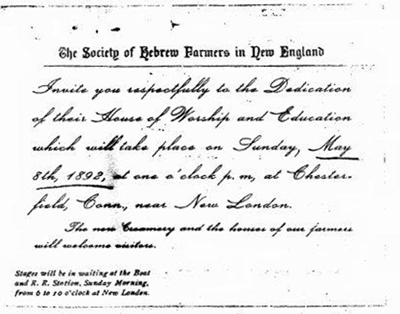 The Society of Hebrew Farmers in New England
Invite you respectfully to the Dedication
of their House of Worship and Education
which will take place on Sunday, May
8th, 1892, at one o'clock p. m, at Chester-
field, Conn., near New London.
The new Creamery and the houses of our farmers
will welcome visitors.
Stages will be in waiting at the Boat
and R. R. Station, Sunday Morning,
from 6 to 10 o'clock at New London.